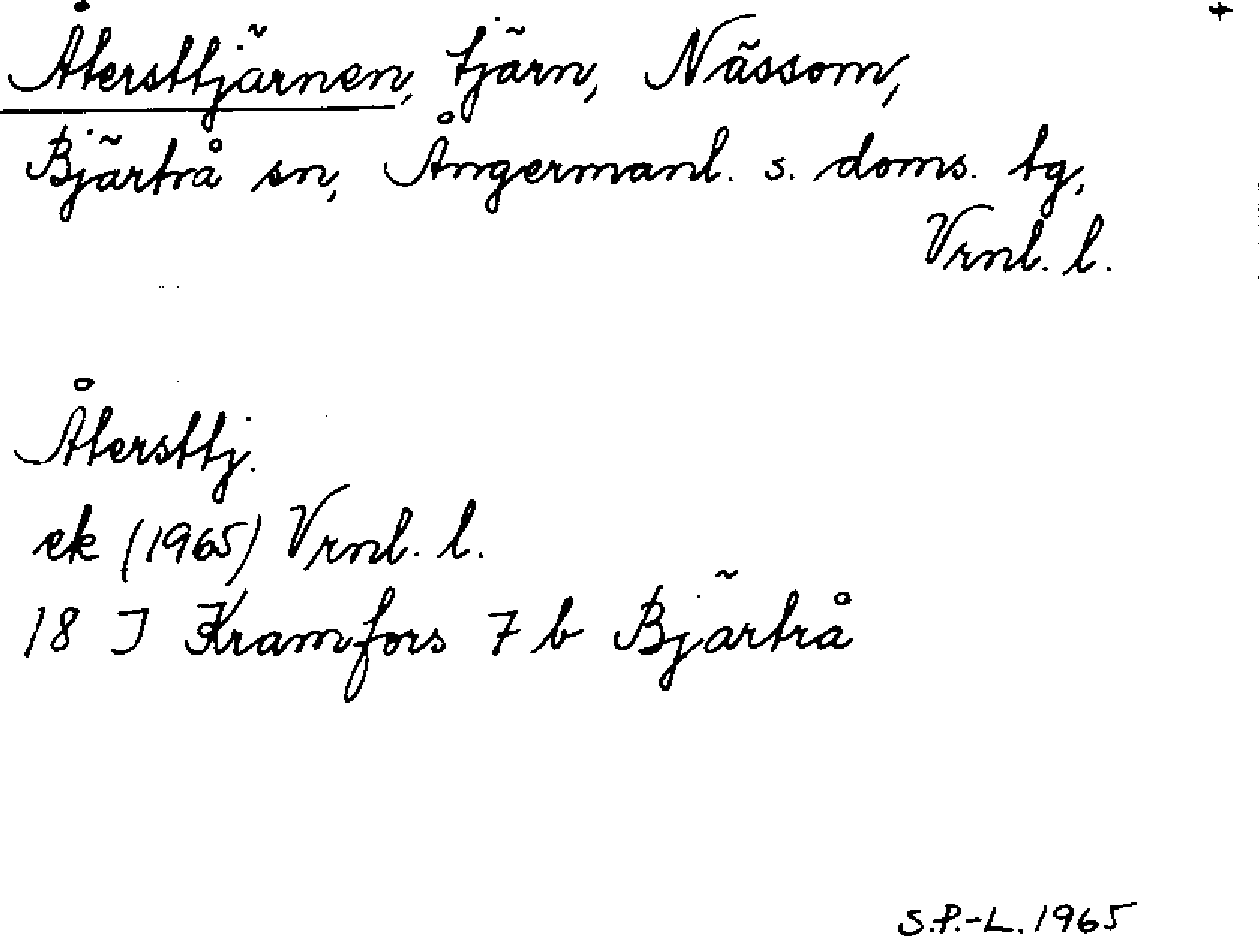 Återsttjärnen, tjärn, Nässom,
Bjärtrå sn, Ångermanl. s. doms. tg,
Vrnl. l.
Återsttj.
ek (1965) Vrnl. l.
18 I Kramfors 7 b Bjärtrå
S.P.-L. 1965